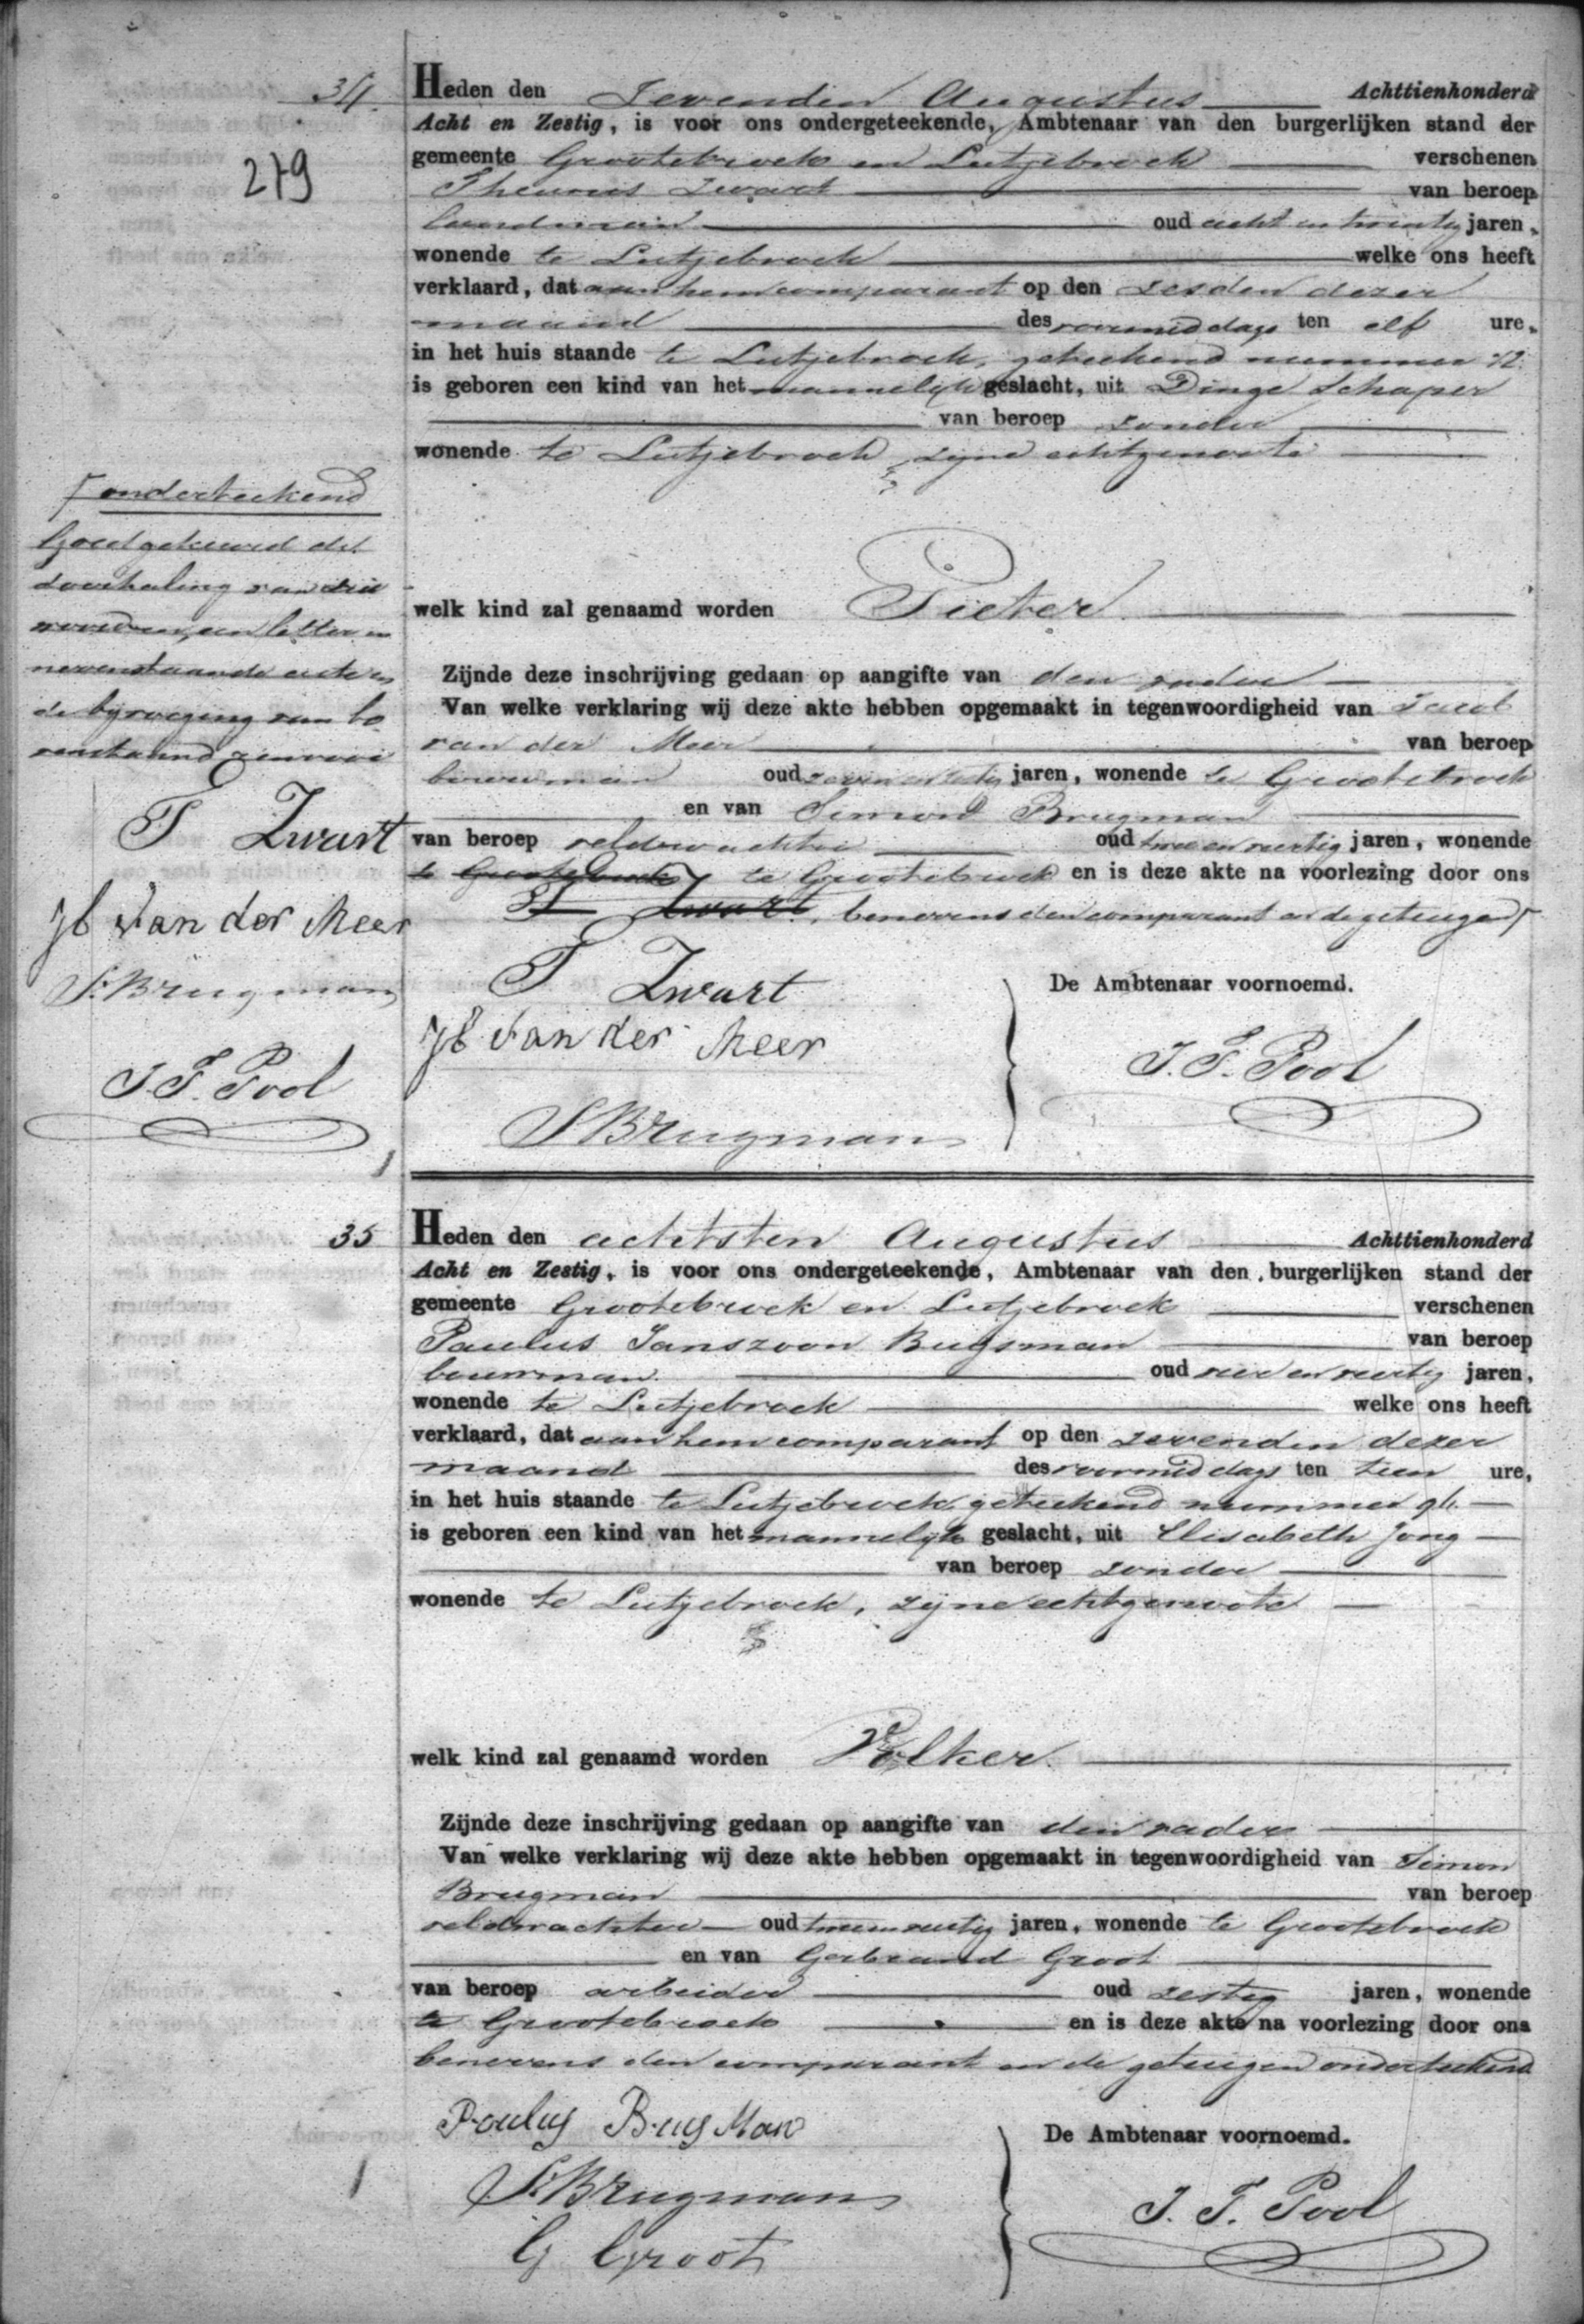 34
Heden den Zevenden Augustus Achttienhonderd
Acht en Zestig, is voor ons ondergeteekende, Ambtenaar van den burgerlijken stand der
gemeente Grootebroek en Lutjebroek verschenen
219
Theunis Zwart van beroep
landman oud acht en twintig jaren,
wonende te Lutjebroek welke ons heeft
verklaard, dat aan hem comparant op den zesden dezer
maand des voormiddags ten elf ure,
in het huis staande te Lutjebroek, geteekend nummer 72
is geboren een kind van het mannelijk geslacht, uit Dinge Schaper
van beroep zonder
wonende te Lutjebroek zijne echtgenoote
welk kind zal genaamd worden Pieter
Zijnde deze inschrijving gedaan op aangifte van den vader
Van welke verklaring wij deze akte hebben opgemaakt in tegenwoordigheid van Jacob
van der Meer van beroep
bouwman oud jaren, wonende te Grootebroek
en van Simon Brugman
van beroep veldwachter oud twee en veertig jaren, wonende
te Grootebroek te Grootebroek en is deze akte na voorlezing door ons
T Zwart, benevens den comparant en de getuigen
onderteekend
Goedgekeurd de
doorhaling van drie
woorden, een letter in
nevenstaande acte en
de bijvoeging van bo
venstaand
T Zwart
Jb Van der Meer
S. Brugman
J. T. Pool
T Zwart
Jb Van der Meer
S Brugman
De Ambtenaar voornoemd.
J. T. Pool
35
Heden den achtsten Augustus Achttienhonderd
Acht en Zestig, is voor ons ondergeteekende, Ambtenaar van den burgerlijken stand der
gemeente Grootebroek en Lutjebroek verschenen
Paulus Janszoon Buysman van beroep
bouwman oud vier en veertig jaren,
wonende te Lutjebroek welke ons heeft
verklaard, dat aan hem comparant op den zevenden dezer
maand des voormiddags ten tien ure,
in het huis staande te Lutjebroek, geteekend nummer
is geboren een kind van het mannelijk geslacht, uit Elisabeth Jong
van beroep zonder
wonende te Lutjebroek, zijne echtgenoote
welk kind zal genaamd worden Volker
Zijnde deze inschrijving gedaan op aangifte van den vader
Van welke verklaring wij deze akte hebben opgemaakt in tegenwoordigheid van Simon
Brugman van beroep
veldwachter oud twee en veertig jaren, wonende te Grootebroek
en van Gerbrand Groot
van beroep arbeider oud zestig jaren, wonende
te Grootebroek en is deze akte na voorlezing door ons
benevens den comparant en de getuigen onderteekend
Paulus Buys Man
S. Brugman
G Groot
De Ambtenaar voornoemd.
J. T. Pool